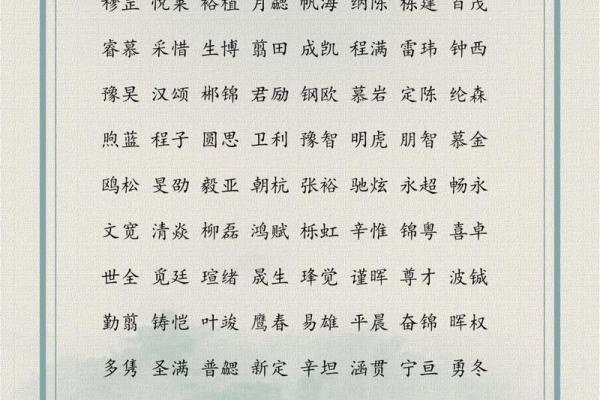 穆罡 悦莱 裕植 月勰 帆海 纳陈 栋建 百茂
睿慕 采惜 生博 翦田 成凯 程满 雷玮 钟西
豫昊 汉颂 郴锦 君励 钢欧 慕岩 定陈 纶森
煦蓝 程子 圆思 卫利 豫智 明虎 朋智 慕金
鸥松 旻劭 毅亚 朝杭 张裕 驰炫 永超 畅永
文宽 清焱 柳磊 鸿赋 栎虹 辛惟 锦粤 喜卓
世全 觅廷 瑄绪 晟生 琒觉 谨晖 尊才 波铖
勤翦 铸恺 叶竣 鹰春 易雄 平晨 奋锦 晖权
多隽 圣满 普勰 新定 辛坦 涵贯 宁亘 勇冬